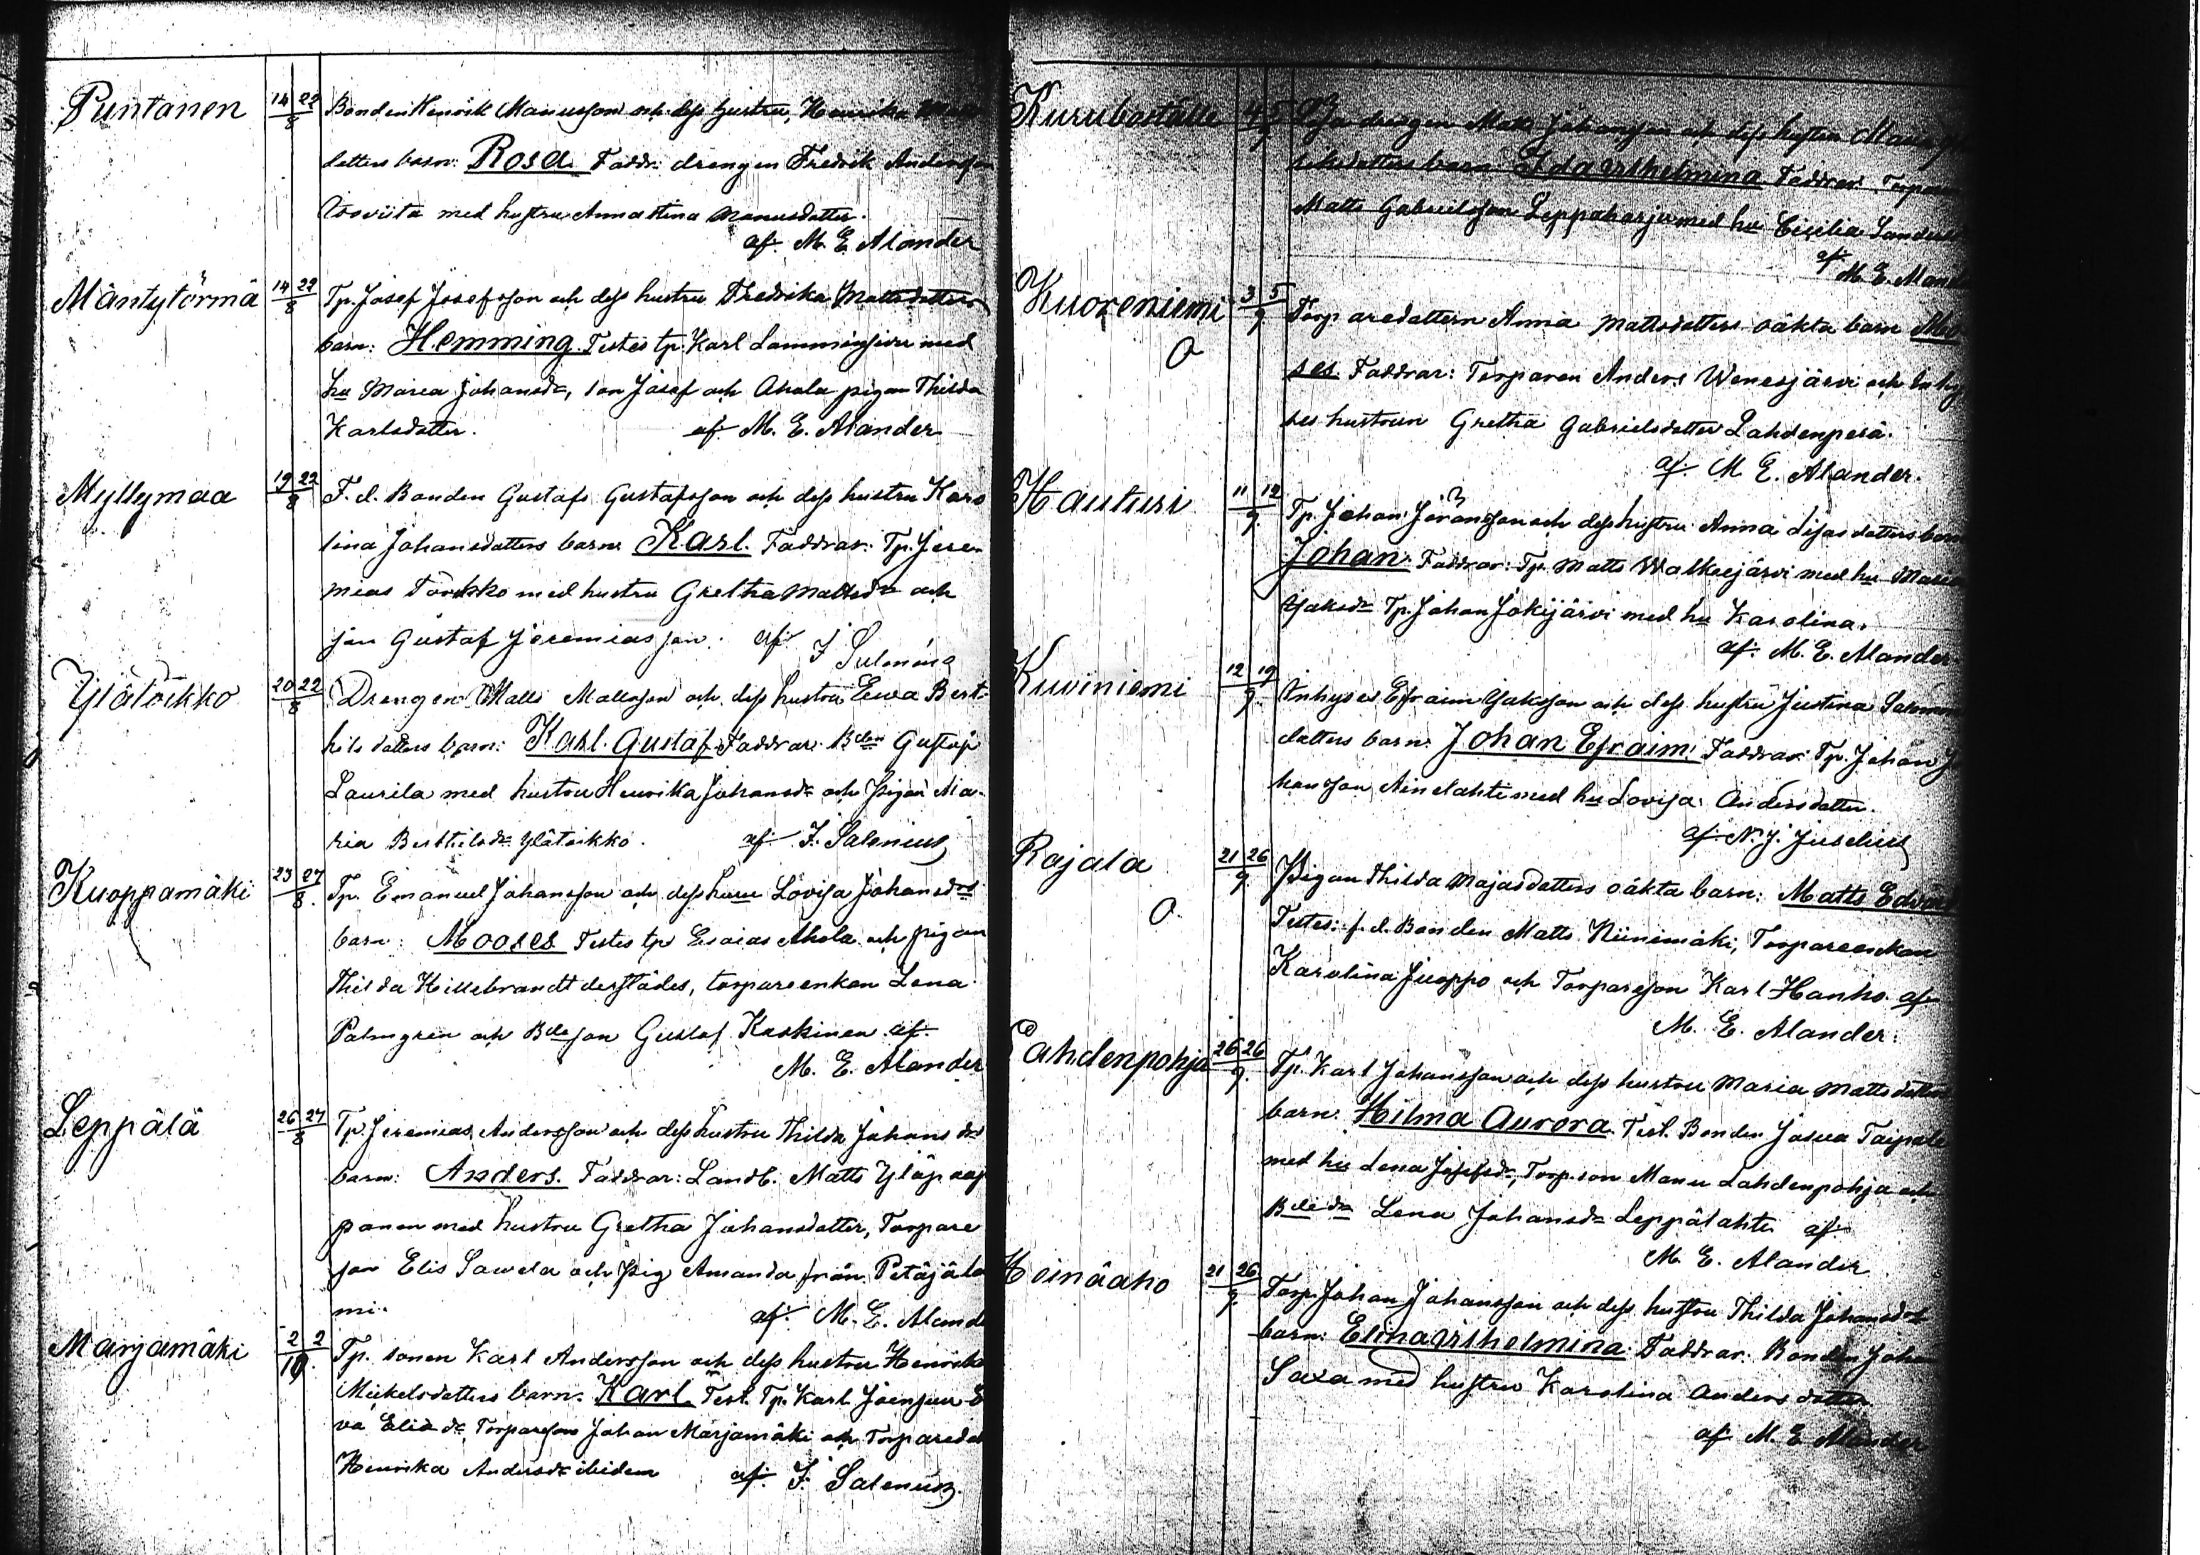 Puntanen 14 22/8 Bonden Henrik Manusson och dess hustru, Henrika
dotters barn: Rosa. Faddr: drengen Fredrik Andersson
med hustru Anna Stina Manusdotter.
af M. E. Alander
Mäntytörmä 14 22/8 Tp. Josef Josefsson och dess hustru Fredrika Mattsdotters
barn: Hemming. Testes tp. Karl Lamminsivu med
hu Maria Johansdr, son Josef och Ahola pigan Thilda
Karlsdotter. af M. E. Alander
Myllymaa 19 22/8 F. d. Bonden Gustaf Gustafsson och dess hustru Karo
lina Johansdotters barn Karl. Faddrar: Tp. Jere
mias Törkko med hustru Gretha Mattsdr och
son Gustaf Jeremiasson. af J Salenius
Ylätoikko 20 22/8 Drengen Matts Mattsson och dess hustru Ewa Bert-
hilsdotters barn: Karl Gustaf. Faddrar: Bden Gustaf
Laurila med hustru Henrika Johansdr och Pigan Ma-
ria Berthilsdr Ylätoikko. af J. Salenius
Kuoppamäki 23 27/8 Tp. Emanuel Johansson och dess huru Lovisa Johansdrs
barn: Mooses Testes tp Esaias Ahola och pigan
Thilda Hillebrandt derstädes, torpareenkan Lena
Palmgren och Bdeson Gustaf Koskinen af
M. E. Alander
Leppälä 26 27/8 Tp. Jeremias Andersson och dess hustru Thilda Johansdrs
barn: Anders. Faddrar: Landb. Matts Yläpaap
panen med hustru Gretha Johansdotter, Torpare
son Elis Sawela och Pig Amanda från Petäjäla
mi. af M. E. Aland
Marjamäki 2 2/10 Tp. sonen Karl Andersson och dess hustru Henrika
Mickelsdotters barn. Karl. Test. Tp. Karl Joensuu E
va Eliædr, Torpareson Johan Marjamäki och Torparedot
Henrika Andersdr ibidem af J. Salenius
Kuruboställe 4 5/9 drengen Matts Johansson och dess hustru Maria
riksdotters barn Ida Wilhelmina Faddrar Torparen
Matts Gabrielsson Leppäharju med hu Cicilia Sanders
af M. E. Aland
Kuoreniemi 3 5/9 Torparedottern Anna Mattsdotters oäkta barn Moo
ses. Faddrar: Torparen Anders Wenesjärvi och Inhy
ses hustrun Gretha Gabrielsdotter Lahdenperä.
af M E. Alander.
Hautusi 11 12/9 Tp. Johan Jöransson och dess hustru Anna Lisasdotters barn
Johan. Faddrar: Tp. Matts Walkeejärvi med hu Maria
Jaksdr Tp. Johan Jokijärvi med hu Karolina.
af. M. E. Alander
Kuviniemi 12 19/9 Inhyses Efraim Jaksson och dess hustru Justina Salomons
dotters barn. Johan Efraim. Faddrar: Tp. Johan Jo
hansson Ainelahti med hu Lovisa Andersdotter.
af N. J. Juselius
Rajala 21 26/9 Pigan Thilda Majasdotters oäkta barn: Matts Edvard
Testes: f. d. Bonden Matts Niinimäki, Torpareenkan
Karolina Juoppo och Torpareson Karl Hanho. af
M. E. Alander.
Lahdenpohja 26 26/9 Tp. Karl Johansson och dess hustru Maria Mattsdotters
barn. Hilma Aurora. Test. Bonden Josua Taipale
med hu Lena Josefsdr, Torp. son Manu Lahdenpohja och
Bdedr Lena Johansdr Leppälahti af
M. E. Alander
Heinäaho 21 26/9 Torp. Johan Johansson och dess hustru Thilda Johansdrs
barn: Elina Wilhelmina. Faddrar. Bonden Johan
Saxa med hustru Karolina Andersdotter
af M. E Alander